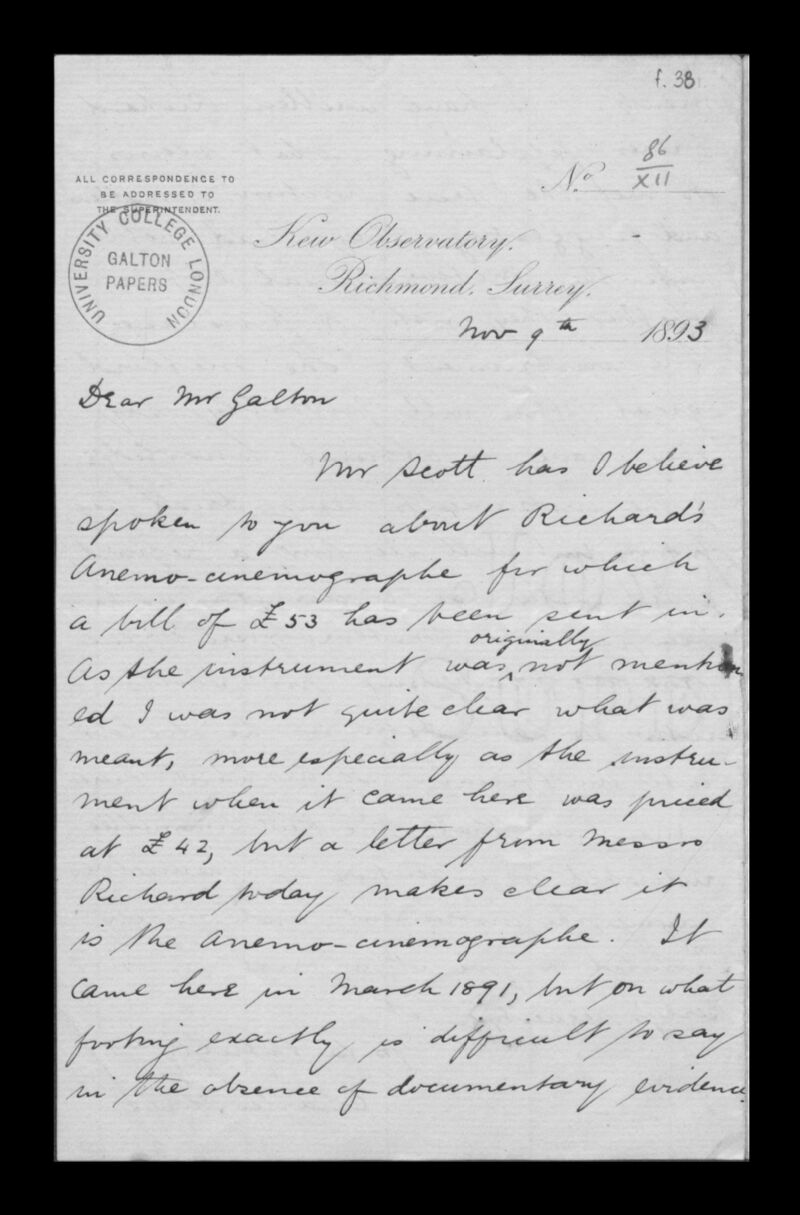 f. 38
ALL CORRESPONDENCE TO
BE ADDRESSED TO
THE SUPERINTENDENT.
No. 86
XII
UNIVERSITY COLLEGE LONDON
GALTON
PAPERS
Kew Observatory,
Richmond, Surrey.
Nov 9th 1893
Dear Mr Galton
Mr Scott has I believe
spoken to you about Richard's
Anemo-cinemographe for which
a bill of £53 has been sent in.
As the instrument was originally not mention
ed I was not quite clear what was
meant, more especially as the instru-
ment when it came here was priced
at £42, but a letter from Messrs
Richard today makes clear it
is the anemo-cinemographe. It
came here in March 1891, but on what
footing exactly is difficult to say
in the absence of documentary evidence.